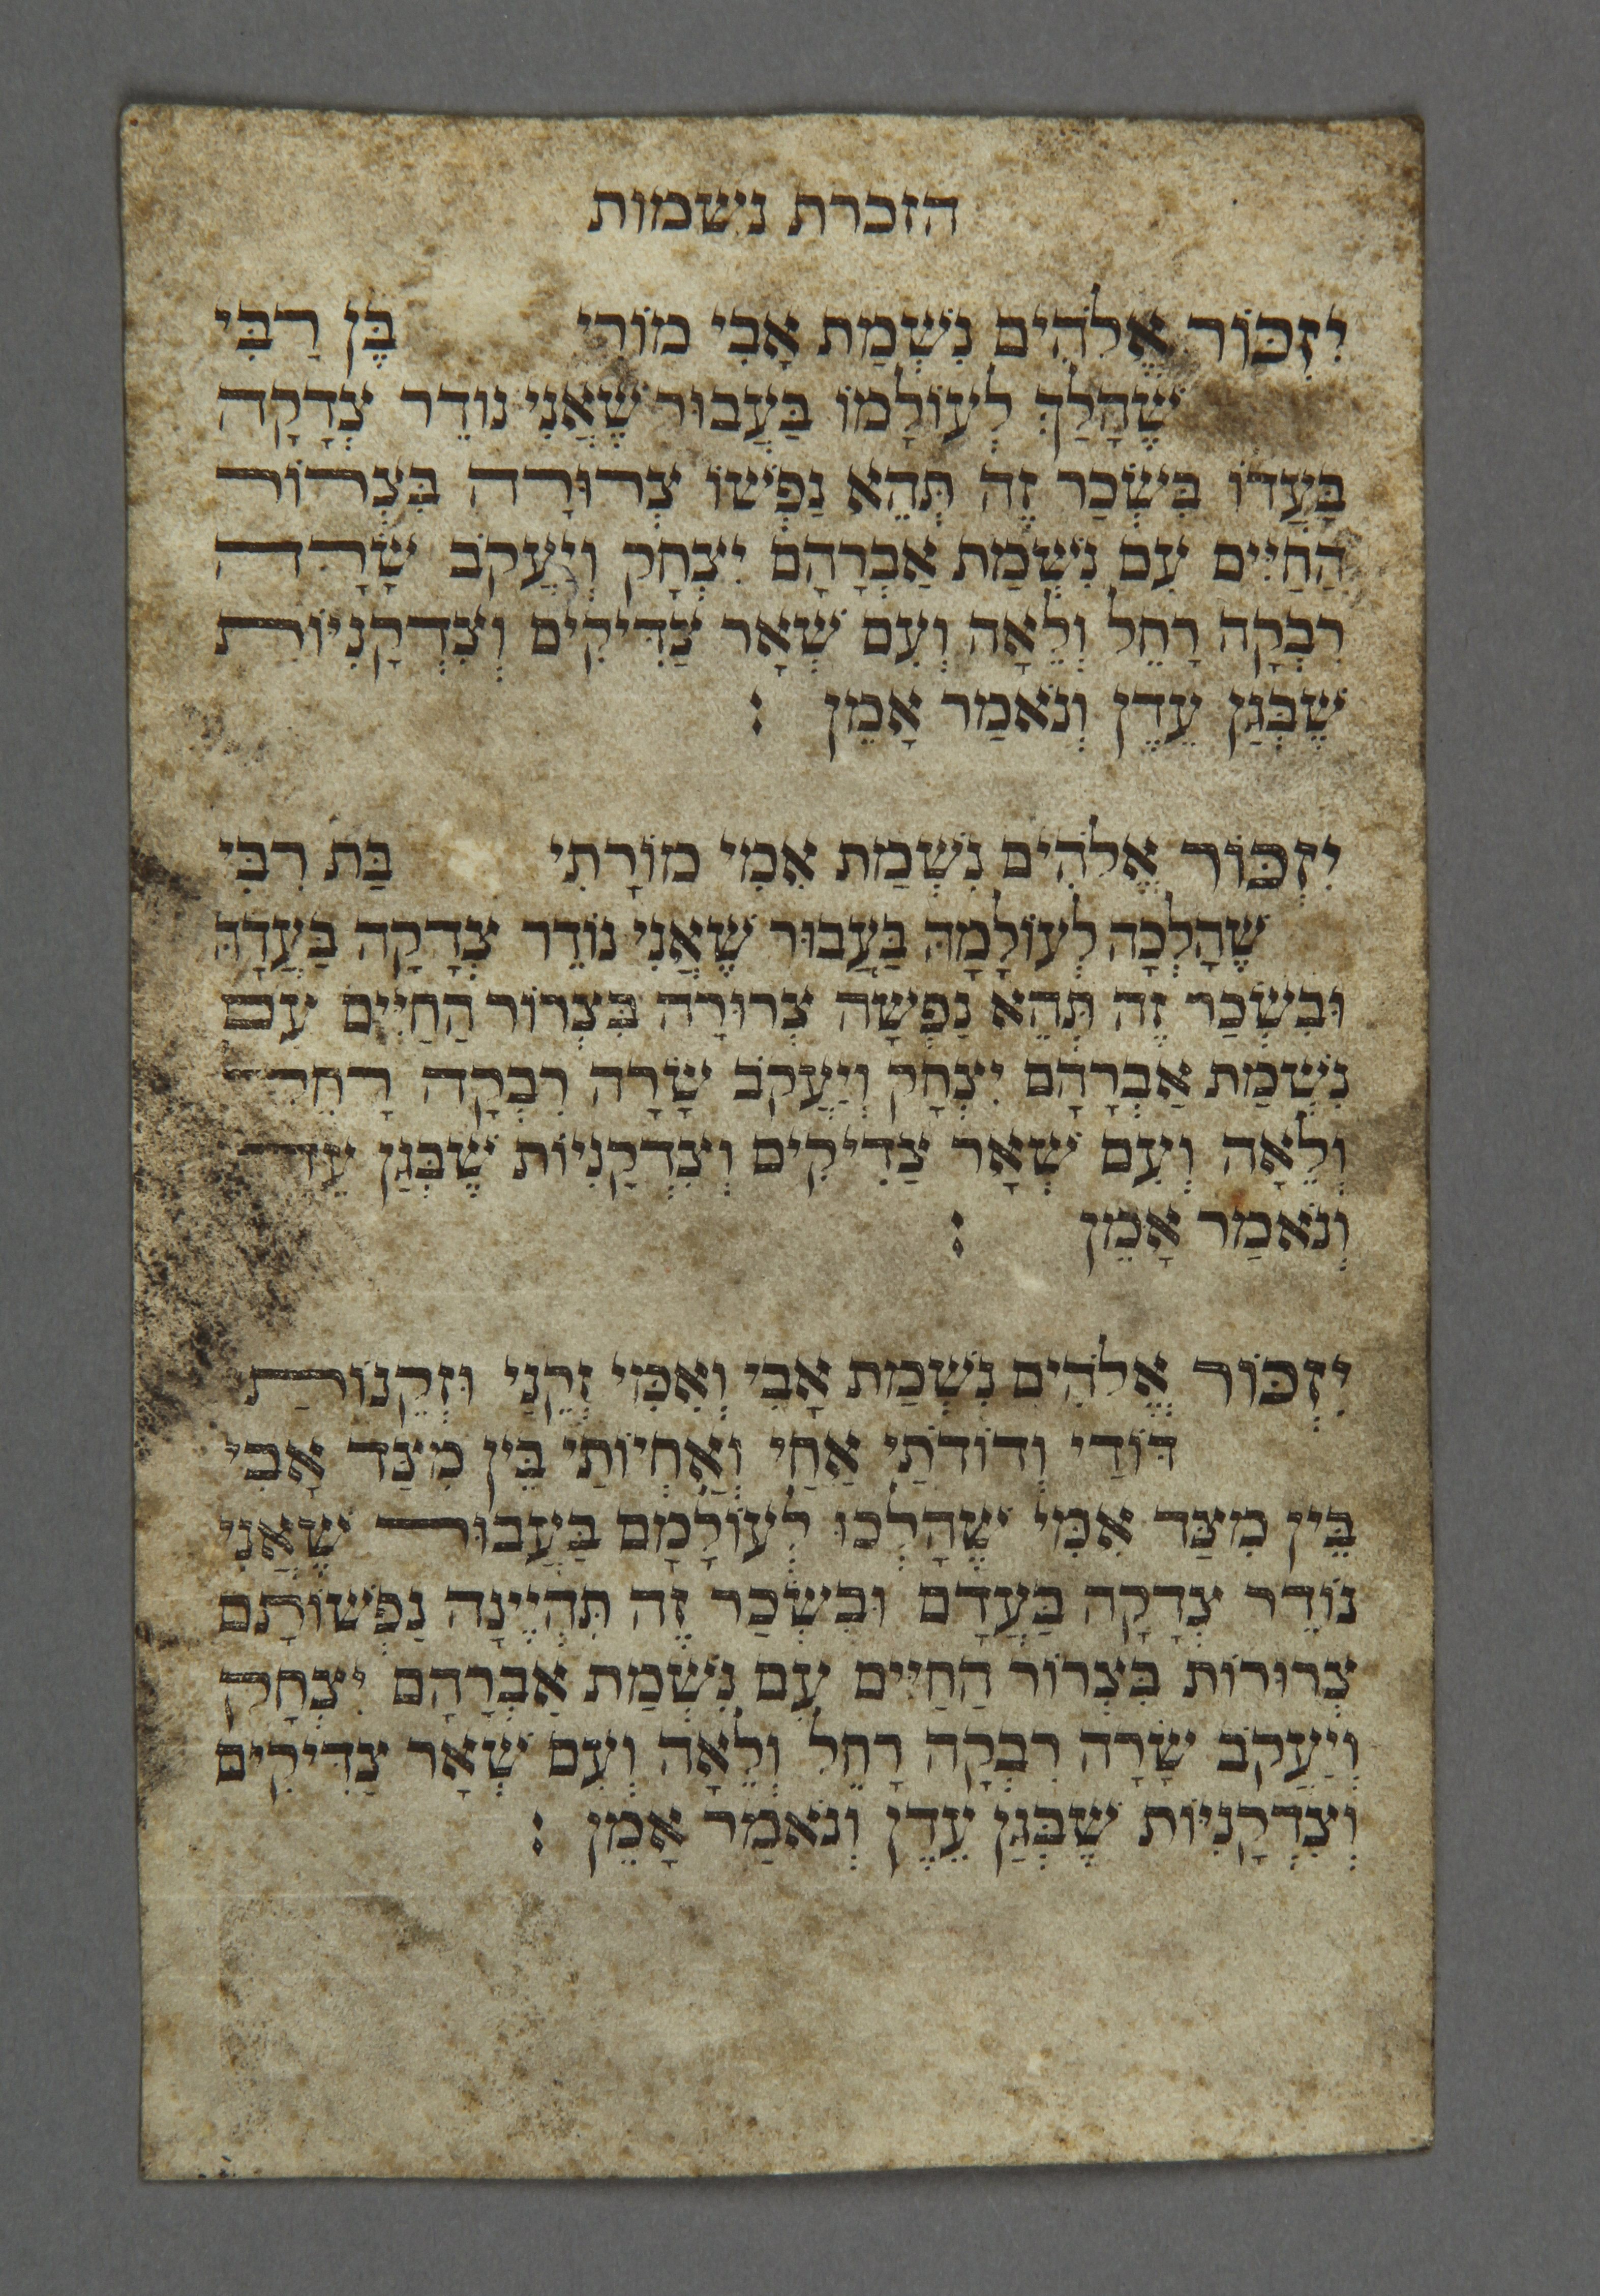 הזכרת נשמות
יִזְכּוֹר אֱלֹהִים נִשְׁמַת אָבִי מוֹרִי בֶּן רַבִּי
שֶׁהָלַךְ לְעוֹלָמוֹ בַּעֲבוּר שֶׁאֲנִי נוֹדֵר צְדָקָה
בַּעֲדוֹ בִּשְׂכַר זֶה תְּהֵא נַפְשׁוֹ צְרוּרָה בִּצְרוֹר
הַחַיִּים עִם נִשְׁמַת אַבְרָהָם יִצְחָק וְיַעֲקֹב שָׂרָה
רִבְקָה רָחֵל וְלֵאָה וְעִם שְׁאָר צַדִּיקִים וְצִדְקָנִיּוֹת
שֶׁבְּגַן עֵדֶן וְנֹאמַר אָמֵן :
יִזְכּוֹר אֱלֹהִים נִשְׁמַת אִמִּי מוֹרָתִי בַּת רַבִּי
שֶׁהָלְכָה לְעוֹלָמָהּ בַּעֲבוּר שֶׁאֲנִי נוֹדֵר צְדָקָה בַּעֲדָהּ
וּבִשְׂכַר זֶה תְּהֵא נַפְשָׁהּ צְרוּרָה בִּצְרוֹר הַחַיִּים עִם
נִשְׁמַת אַבְרָהָם יִצְחָק וְיַעֲקֹב שָׂרָה רִבְקָה רָחֵל
וְלֵאָה וְעִם שְׁאָר צַדִיקִים וְצִדְקָנִיוֹת שֶׁבְּגַן עֵדֶן
וְנֹאמַר אָמֵן :
יִזְכּוֹר אֱלֹהִים נִשְׁמַת אָבִי וְאִמִּי זְקֵנַי וּזְקֵנוֹתַי
דּוֹדַי וְדוֹדֹתַי אַחַי וְאַחְיוֹתַי בֵּין מִצַּד אָבִי
בֵּין מִצַּד אִמִּי שֶׁהָלְכוּ לְעוֹלָמָם בַּעֲבוּר שֶׁאֲנִי
נוֹדֵר צְדָקָה בַּעֲדָם וּבִשְׂכַר זֶה תִּהְיֶינָה נַפְשׁוֹתָם
צְרוּרוֹת בִּצְרוֹר הַחַיִּים עִם נִשְׁמַת אַבְרָהָם יִצְחָק
וְיַעֲקֹב שָׂרָה רִבְקָה רָחֵל וְלֵאָה וְעִם שְׁאָר צַדִּיקִים
וְצִדְקָנִיּוֹת שֶׁבְּגַן עֵדֶן וְנֹאמַר אָמֵן :